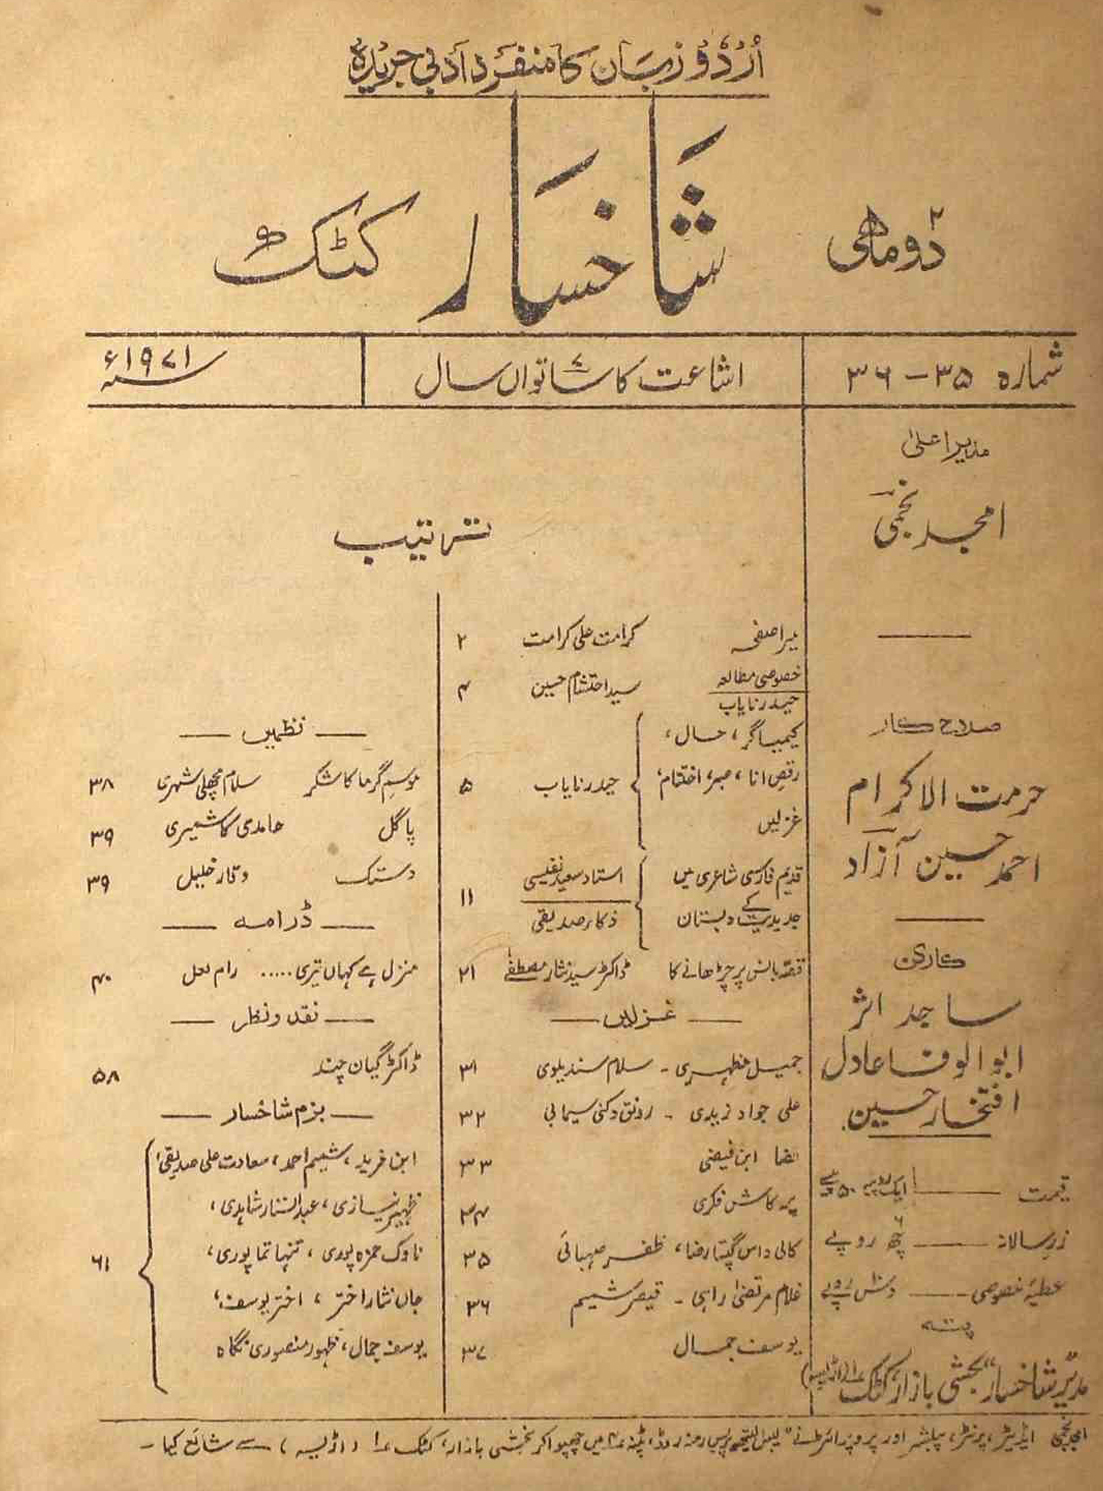 اُردُو زبَان کا منفرَد اَدبی جریدہ
۲
دوماھی شَاخسَار کٹک
شمارہ ۳۵ – ۳۶
اشاعت کا ساتواں سال
۷
سنہ ۱۹۷۱ء
مدیر اعلیٰ
امجد نجمی
صلاح کار
حرمت الاکرام
احمد حسین آزاد
کارکن
ساجد اثر
ابوالوفا عادل
افتخار حسین
قیمت ایک روپیہ ۵۰ پیسے
زرِ سالانہ چھ روپے
۶
عطیۂ خصوصی دس روپے
پتہ
مدیر شاخسار بخشی بازار کٹک ۱ (اڑیسہ)
ترتیب
میرا صفحہ کرامت علی کرامت ۲
خصوصی مطالعہ
حیدر نایاب
سید احتشام حسین ۴
کیمیاگر، حال،
رقصِ انا، صبر، اختتام، حیدر نایاب ۵
غزلیں
قدیم فارسی شاعری میں استاد سعید نفیسی
جدیدیت کے دبستان ذکاء صدیقی ۱۱
قصّہ بانس پر چڑھانے کا ڈاکٹر سید نثار مصطفٰے ۲۱
— غزلیں —
جمیل مظہری - سلام سندیلوی ۳۱
علی جواد زیدی - رونق دکنی سیمابی ۳۲
ابن فیضی ۳۳
پرکاش فکری ۳۴
کالی داس گپتا رضا، ظفر صہبائی ۳۵
غلام مرتضیٰ راہی - قیصر شمیم ۳۶
یوسف جمال ۳۷
— نظمیں —
موسمِ گرما کا شکر سلام مچھلی شہری ۳۸
پاگل حامدی کاشمیری ۳۹
دستک وقار خلیل ۳۹
— ڈرامہ —
منزل ہے کہاں تیری..... رام لعل ۴۰
— نقد و نظر —
ڈاکٹر گیان چند ۵۸
— بزم شاخسار —
ابن فرید، شمیم احمد، سعادت علی صدیقی،
ظہیر نیازی، عبدالستار شاہدی،
ناوک حمزہ پوری، تنہا تماپوری، ۶۱
جاں نثار اختر، اختر یوسف،
یوسف جمال، ظہور منصوری نگاہ
امجد نجمی ایڈیٹر، پرنٹر، پبلشر اور پروپرائٹر نے لیبل لیتھو پریس رمنہ روڈ، پٹنہ ۴ میں چھپوا کر بخشی بازار، کٹک ۱ (اڑیسہ) سے شائع کیا -